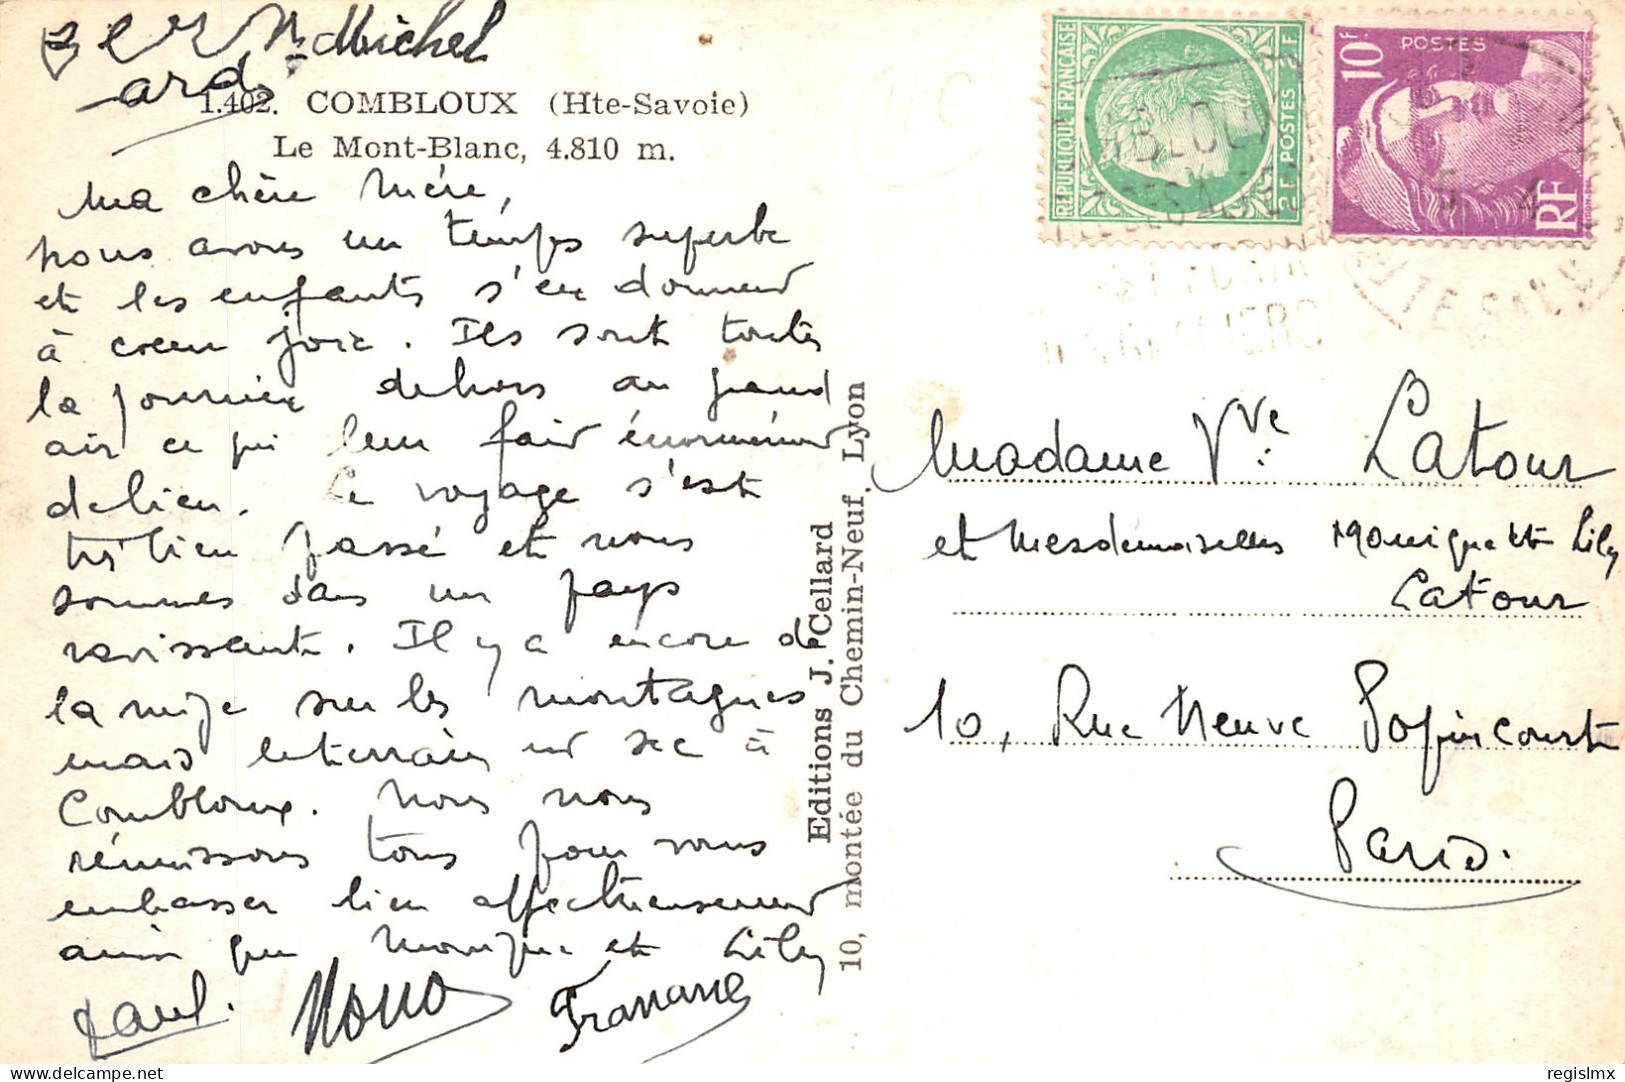 Bern
ard
Michel
1.402. COMBLOUX (Hte-Savoie)
Le Mont-Blanc, 4.810 m.
Ma chère Mère,
nous avons un temps superbe
et les enfants s'en donnent
à cœur joie. Ils sont toute
la journée dehors au grand
air ce qui leur fait énormément
de bien. Le voyage s'est
très bien passé et nous
sommes dans un pays
ravissant. Il y a encore de
la neige sur les montagnes
mais le terrain est sec à
Combloux. Nous nous
réunissons tous pour vous
embrasser bien affectueusement
ainsi que Monique et Lily
Paul.
Nono
Editions J. Cellard
10, montée du Chemin-Neuf, Lyon
REPUBLIQUE FRANÇAISE
2F. POSTES 2F.
10F
POSTES
RF
HAUTE-SAVOIE
Madame Vve Latour
et Mesdemoiselles Monique et Lily
Latour
10, Rue Neuve Popincourt
Paris.
regislmx
delcampe.net